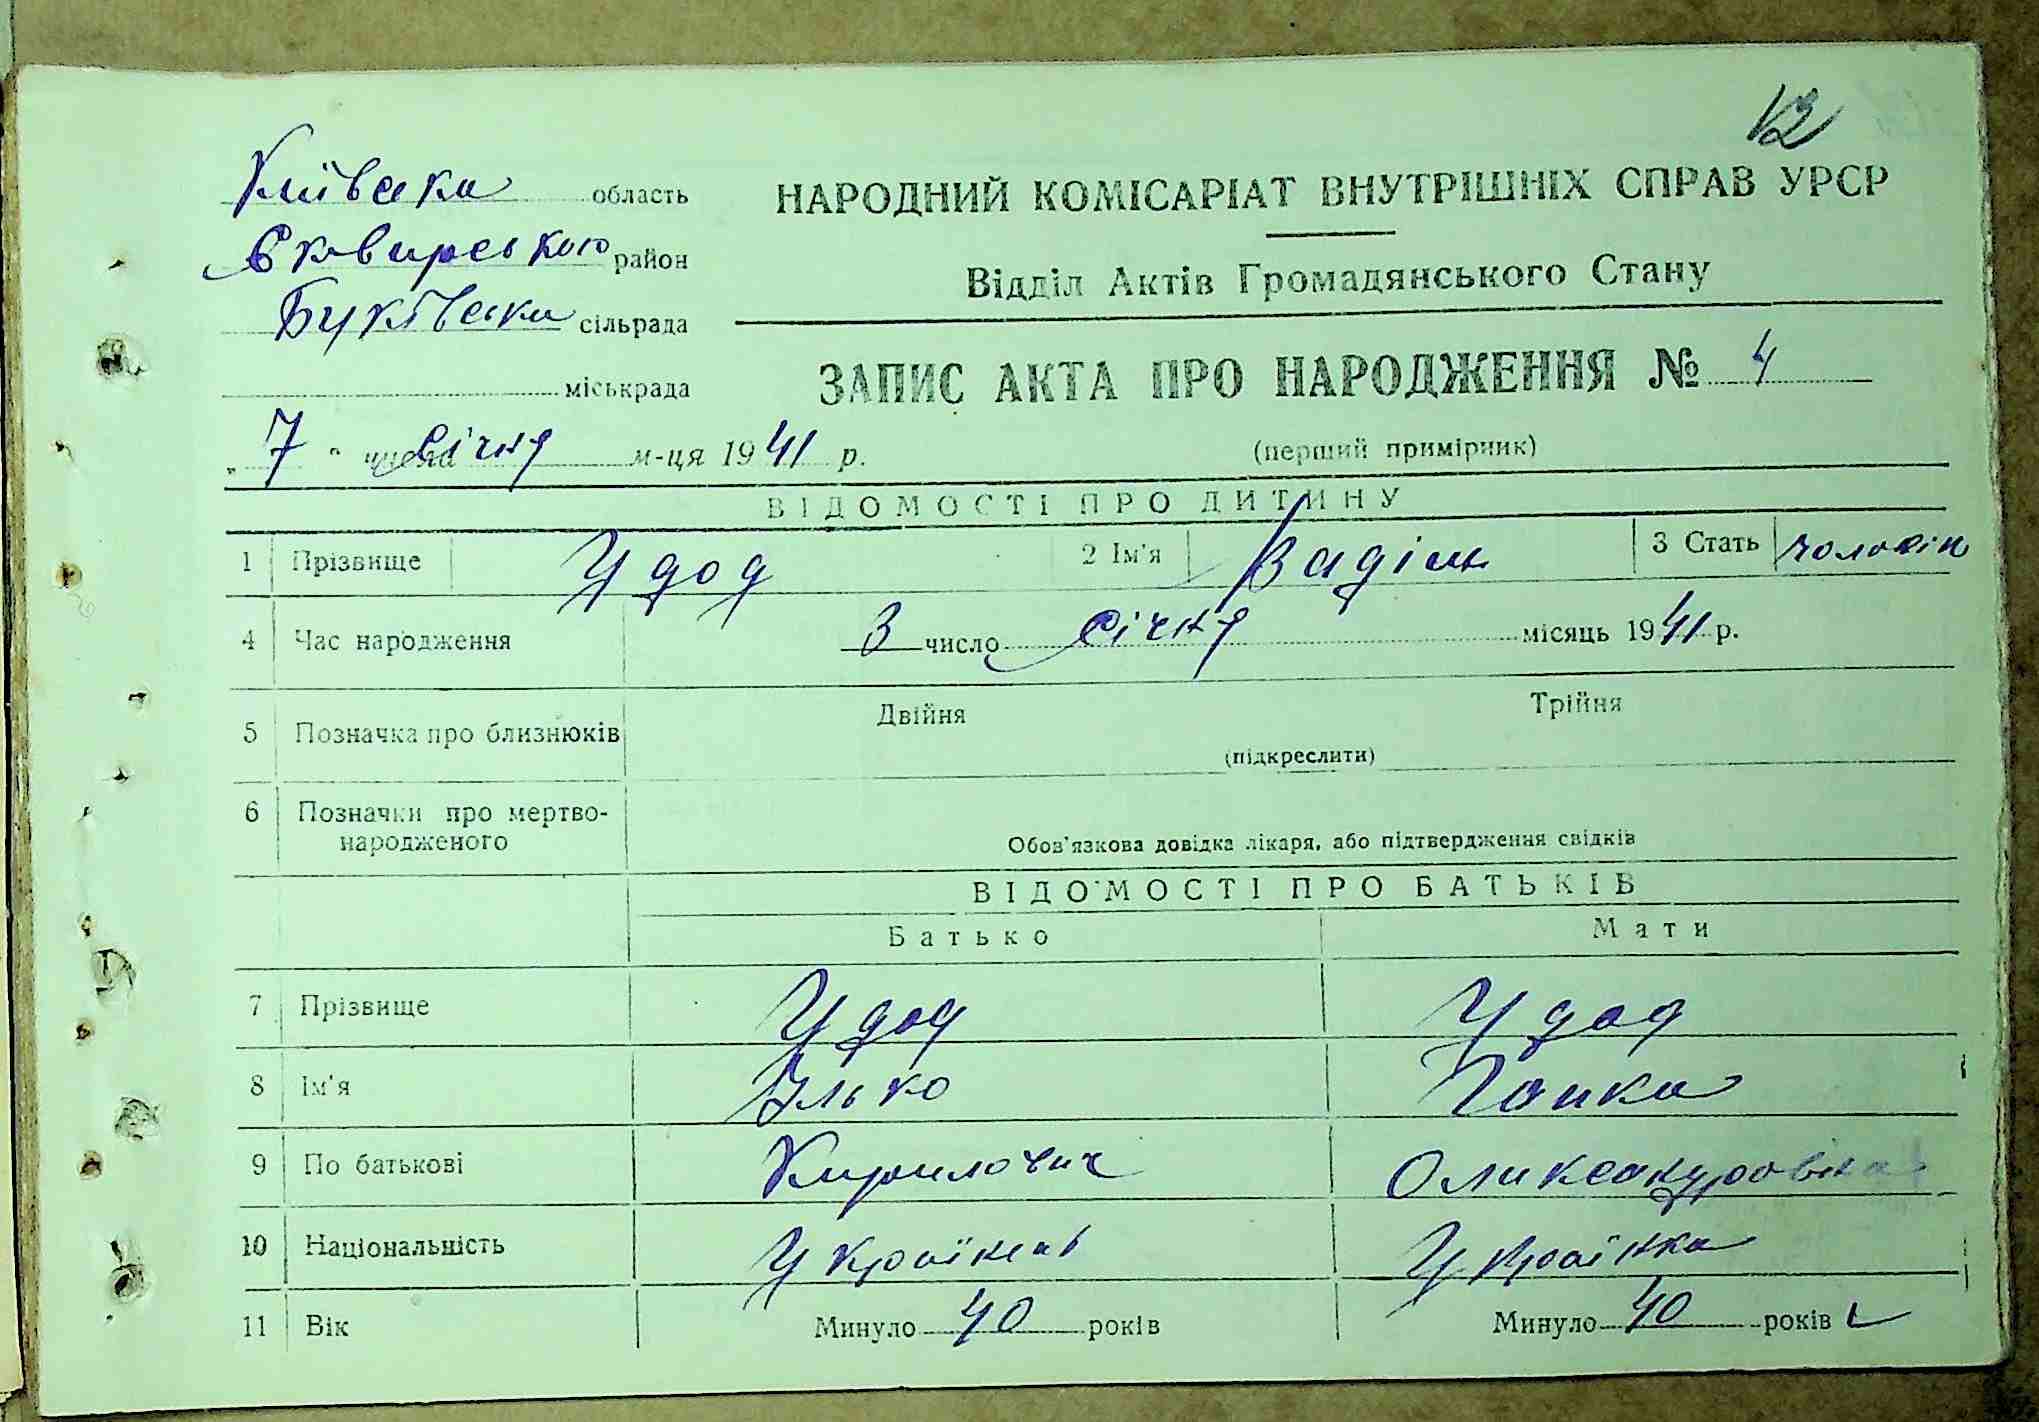 12
Київська область
Сквирського район
Буківська сільрада
міськрада
НАРОДНИЙ КОМІСАРІАТ ВНУТРІШНІХ СПРАВ УРСР
Відділ Актів Громадянського Стану
ЗАПИС АКТА ПРО НАРОДЖЕННЯ № 4
„ 7 " числа січня м-ця 1941 р.
(перший примірник)
ВІДОМОСТІ ПРО ДИТИНУ
1 Прізвище Удод 2 Ім'я Вадім 3 Стать чоловін
4 Час народження 3 число січня місяць 1941 р.
5 Позначка про близнюків Двійня Трійня
(підкреслити)
6 Позначки про мертво-
народженого
Обов'язкова довідка лікаря, або підтвердження свідків
ВІДОМОСТІ ПРО БАТЬКІВ
Батько Мати
7 Прізвище Удод Удод
8 Ім'я Ілько Ганка
9 По батькові Кирилович Олександровна
10 Національність Українець Українка
11 Вік Минуло 40 років Минуло 40 років